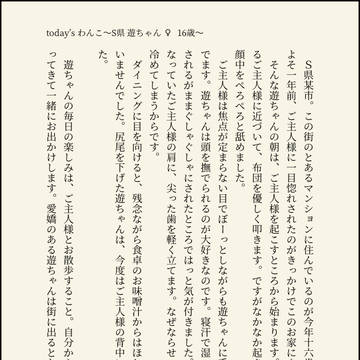 today's わんこ～S県 遊ちゃん♀ 16歳～
S県某市。この街のとあるマンションに住んでいるのが今年十六
よそ一年前、ご主人様に一目惚れされたのがきっかけでこのお家に
そんな遊ちゃんの朝は、ご主人様を起こすところから始まります。
るご主人様に近づいて、布団を優しく叩きます。ですがなかなか起
顔中をぺろぺろと舐めました。
ご主人様は焦点が定まらない目でぼーっとしながらも遊ちゃんに
です。遊ちゃんは頭を撫でられるのが大好きなのです。寝汗で湿
されるがままぐしゃぐしゃにされたところではっと気が付きました。
なっていたご主人様の肩に、尖った歯を軽く立てます。なぜならせ
冷めてしまうからです。
ダイニングに目を向けると、残念ながら食卓のお味噌汁からはほ
いませんでした。尻尾を下げた遊ちゃんは、今度はご主人様の背中
た。
遊ちゃんの毎日の楽しみは、ご主人様とお散歩すること。自分か
ってきて一緒にお出かけします。愛嬌のある遊ちゃんは街に出ると